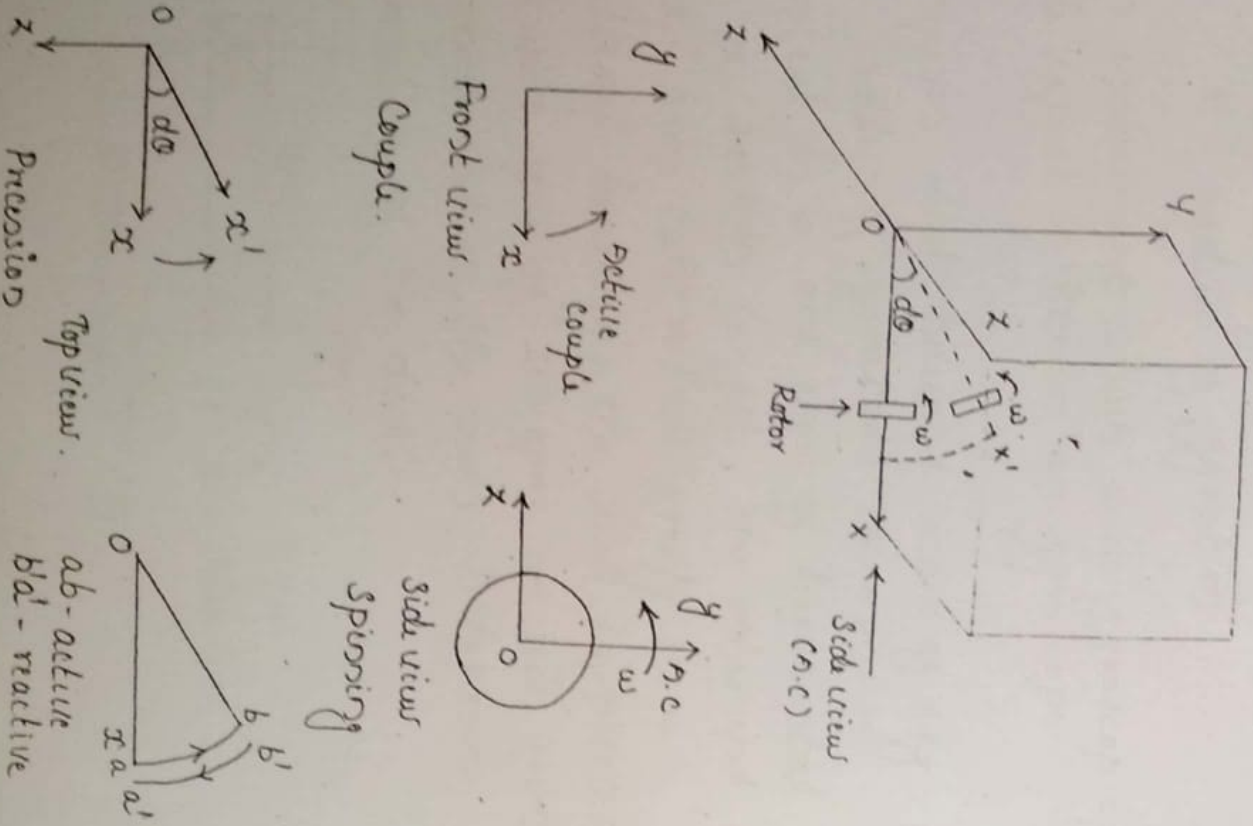 y
z
z
ω
x'
O
dθ
ω
x
Rotor
Side view
(A.C)
y
x
Active
couple
Front view.
Couple.
y
A.C
ω
z
O
Side view.
Spinning
O
dθ
x'
x
z
Top view.
Precession
O
b
b'
x
a
a'
ab - active
b'a' - reactive